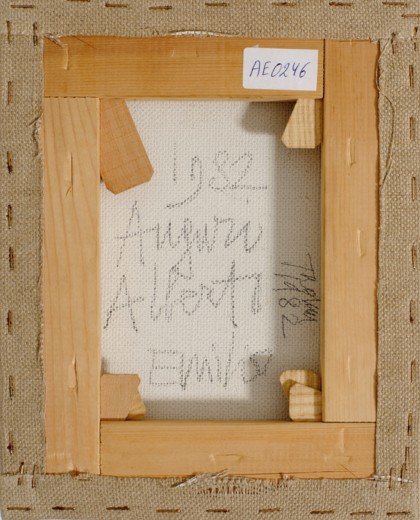 AE0246
1982
Auguri
Alberto
Emilio
1982